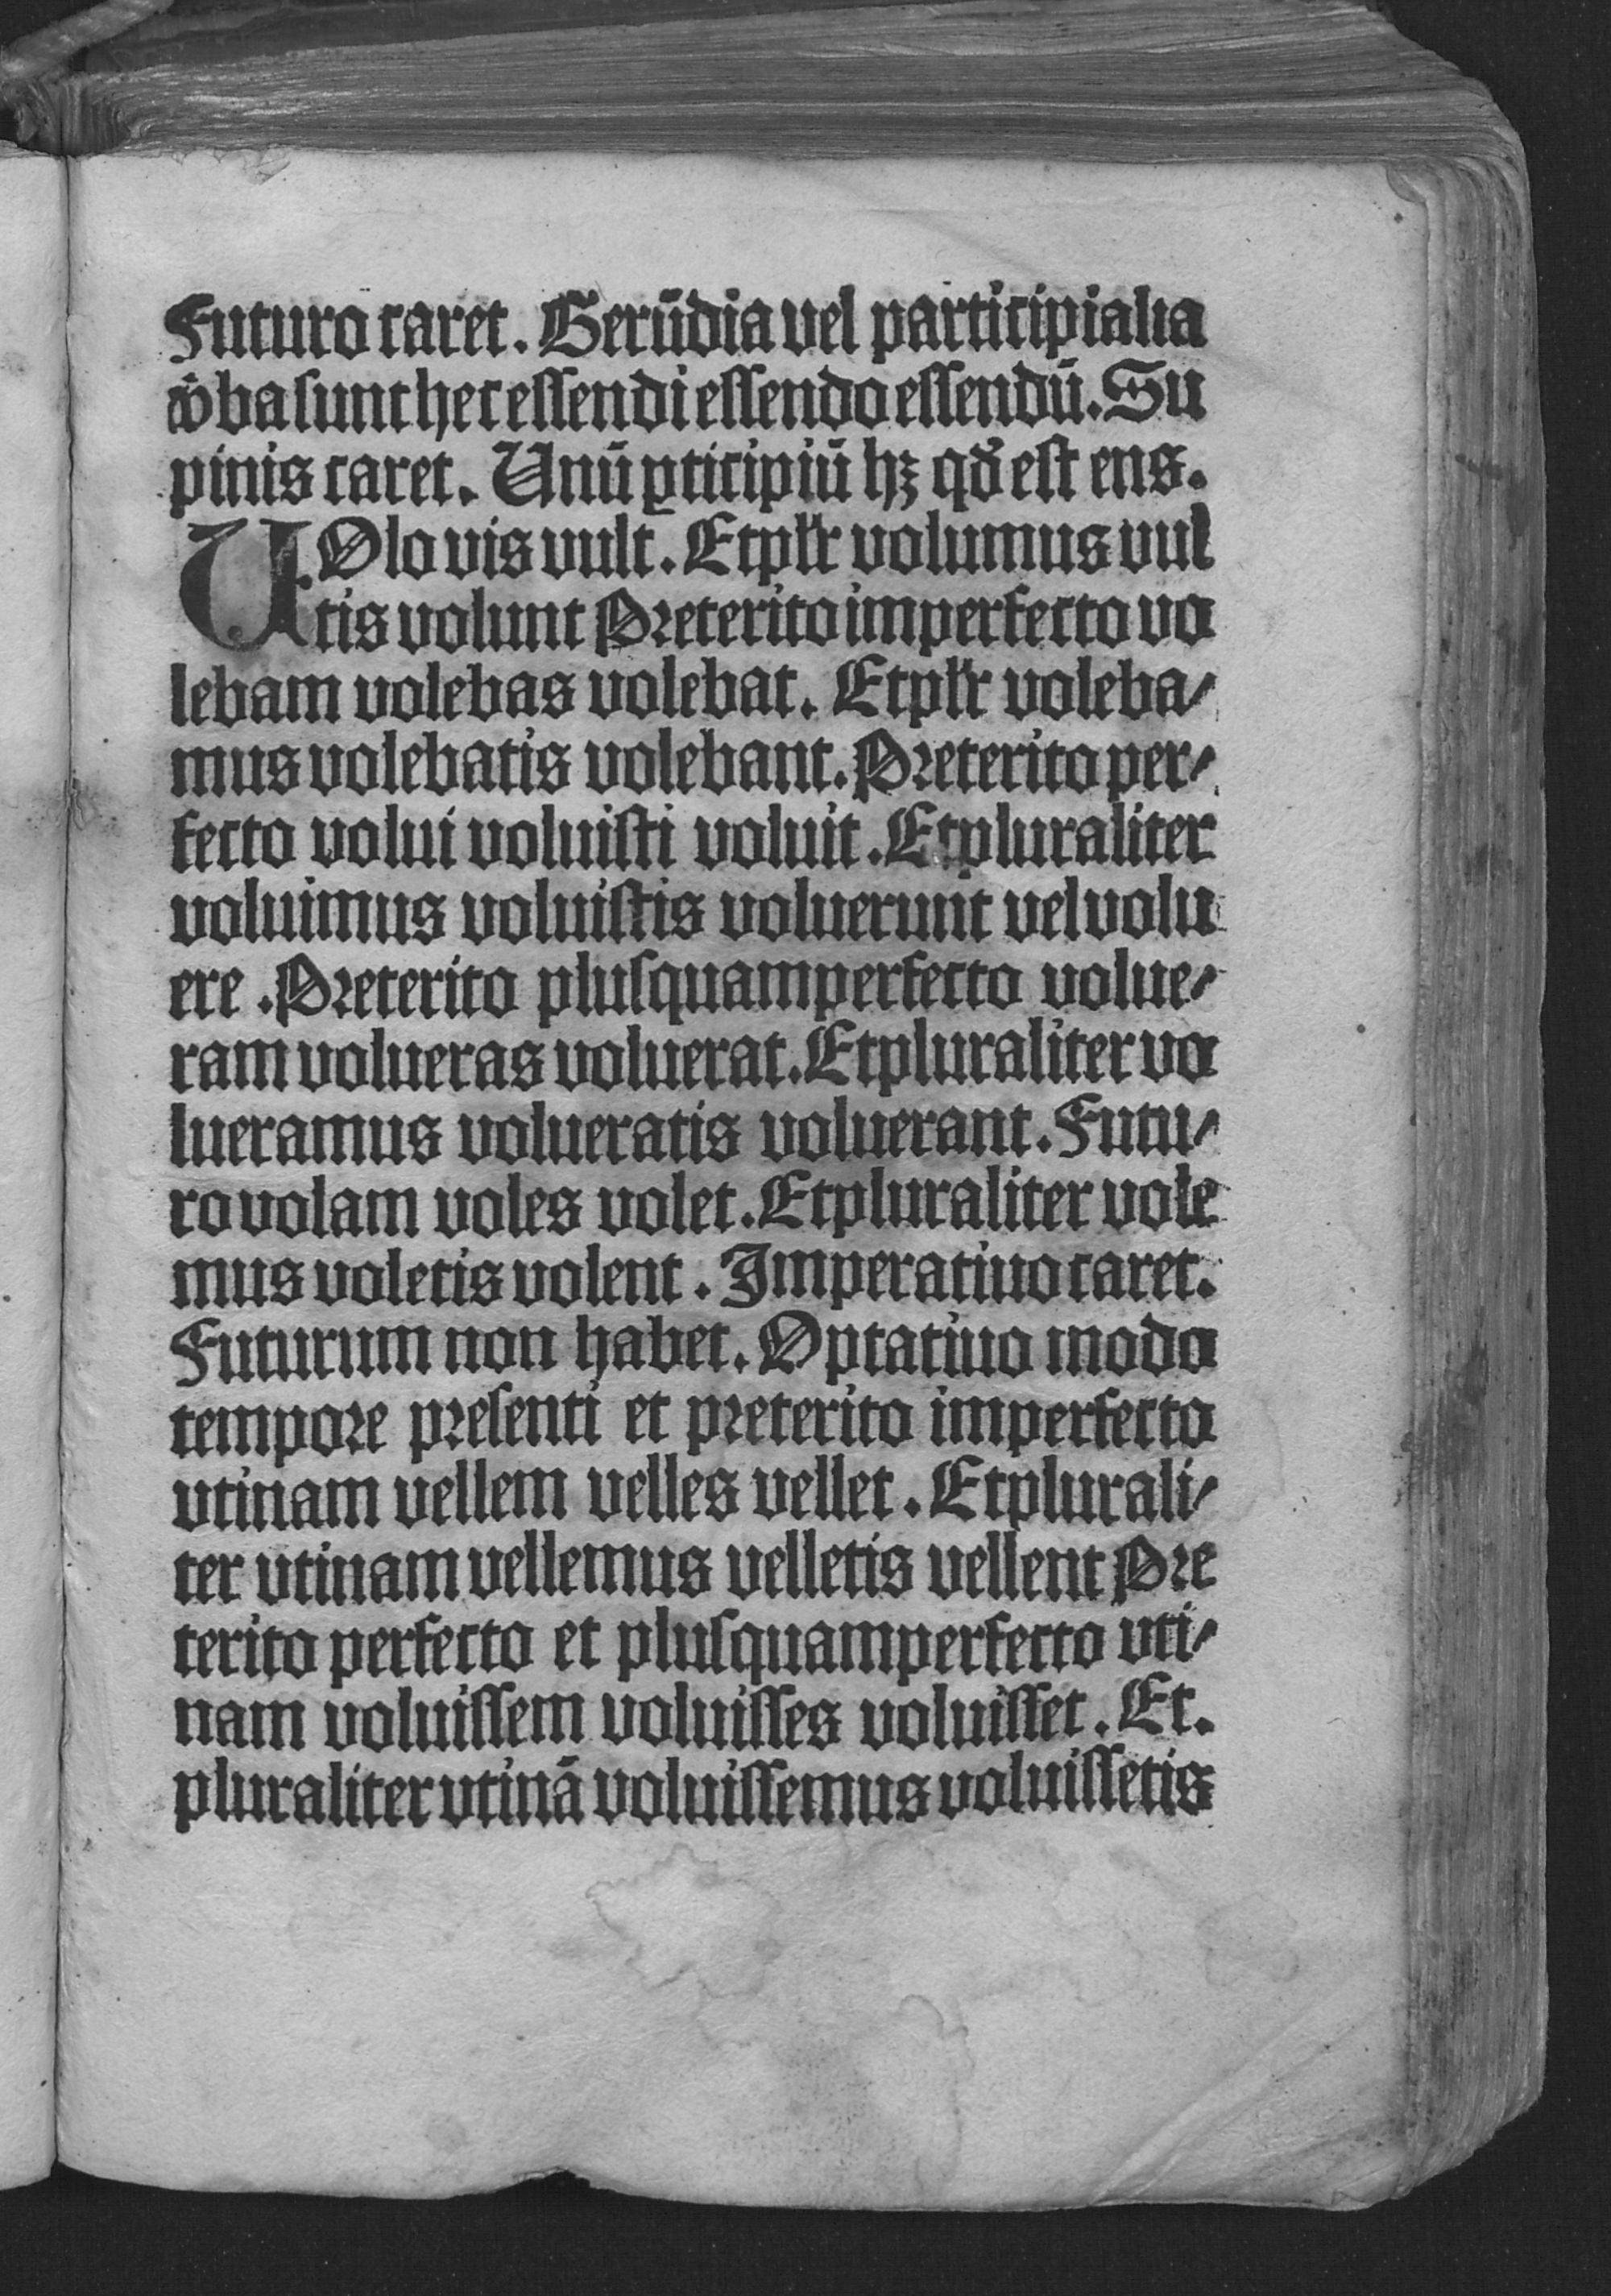 Futuro caret. Gerūdia vel participialia
v̄ba sunt hec essendi essendo essendū. Su
pinis caret. Unū ꝑticipiū hꝫ qď est ens.
VOlo vis vult. Et pl̄r volumus vul
tis volunt Preterito imperfecto vo
lebam volebas volebat. Et pl̄r voleba⸗
mus volebatis volebant. Preterito per⸗
fecto volui voluisti voluit. Et pluraliter
voluimus voluistis voluerunt vel volu
ere. Preterito plusquamperfecto volue⸗
ram volueras voluerat. Et pluraliter vo
lueramus volueratis voluerant. Futu⸗
ro volam voles volet. Et pluraliter vole
mus voletis volent. Imperatiuo caret.
Futurum non habet. Optatiuo modo
tempore presenti et preterito imperfecto
vtinam vellem velles vellet. Et plurali⸗
ter vtinam vellemus velletis vellent Pre
terito perfecto et plusquamperfecto vti⸗
nam voluissem voluisses voluisset. Et.
pluraliter vtinā voluissemus voluissetis